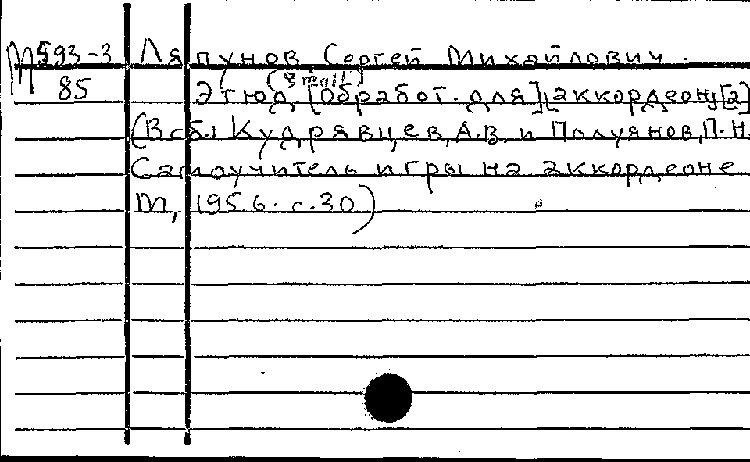 М593-3 Ляпунов, Сергей Михайлович.
85 Этюд, [обработ. для] [аккордеону [2]
(В сб.: Кудрявцев, А.В. и Полуянов, П.Н.
Самоучитель игры на аккордеоне
М, 1956. с.30)